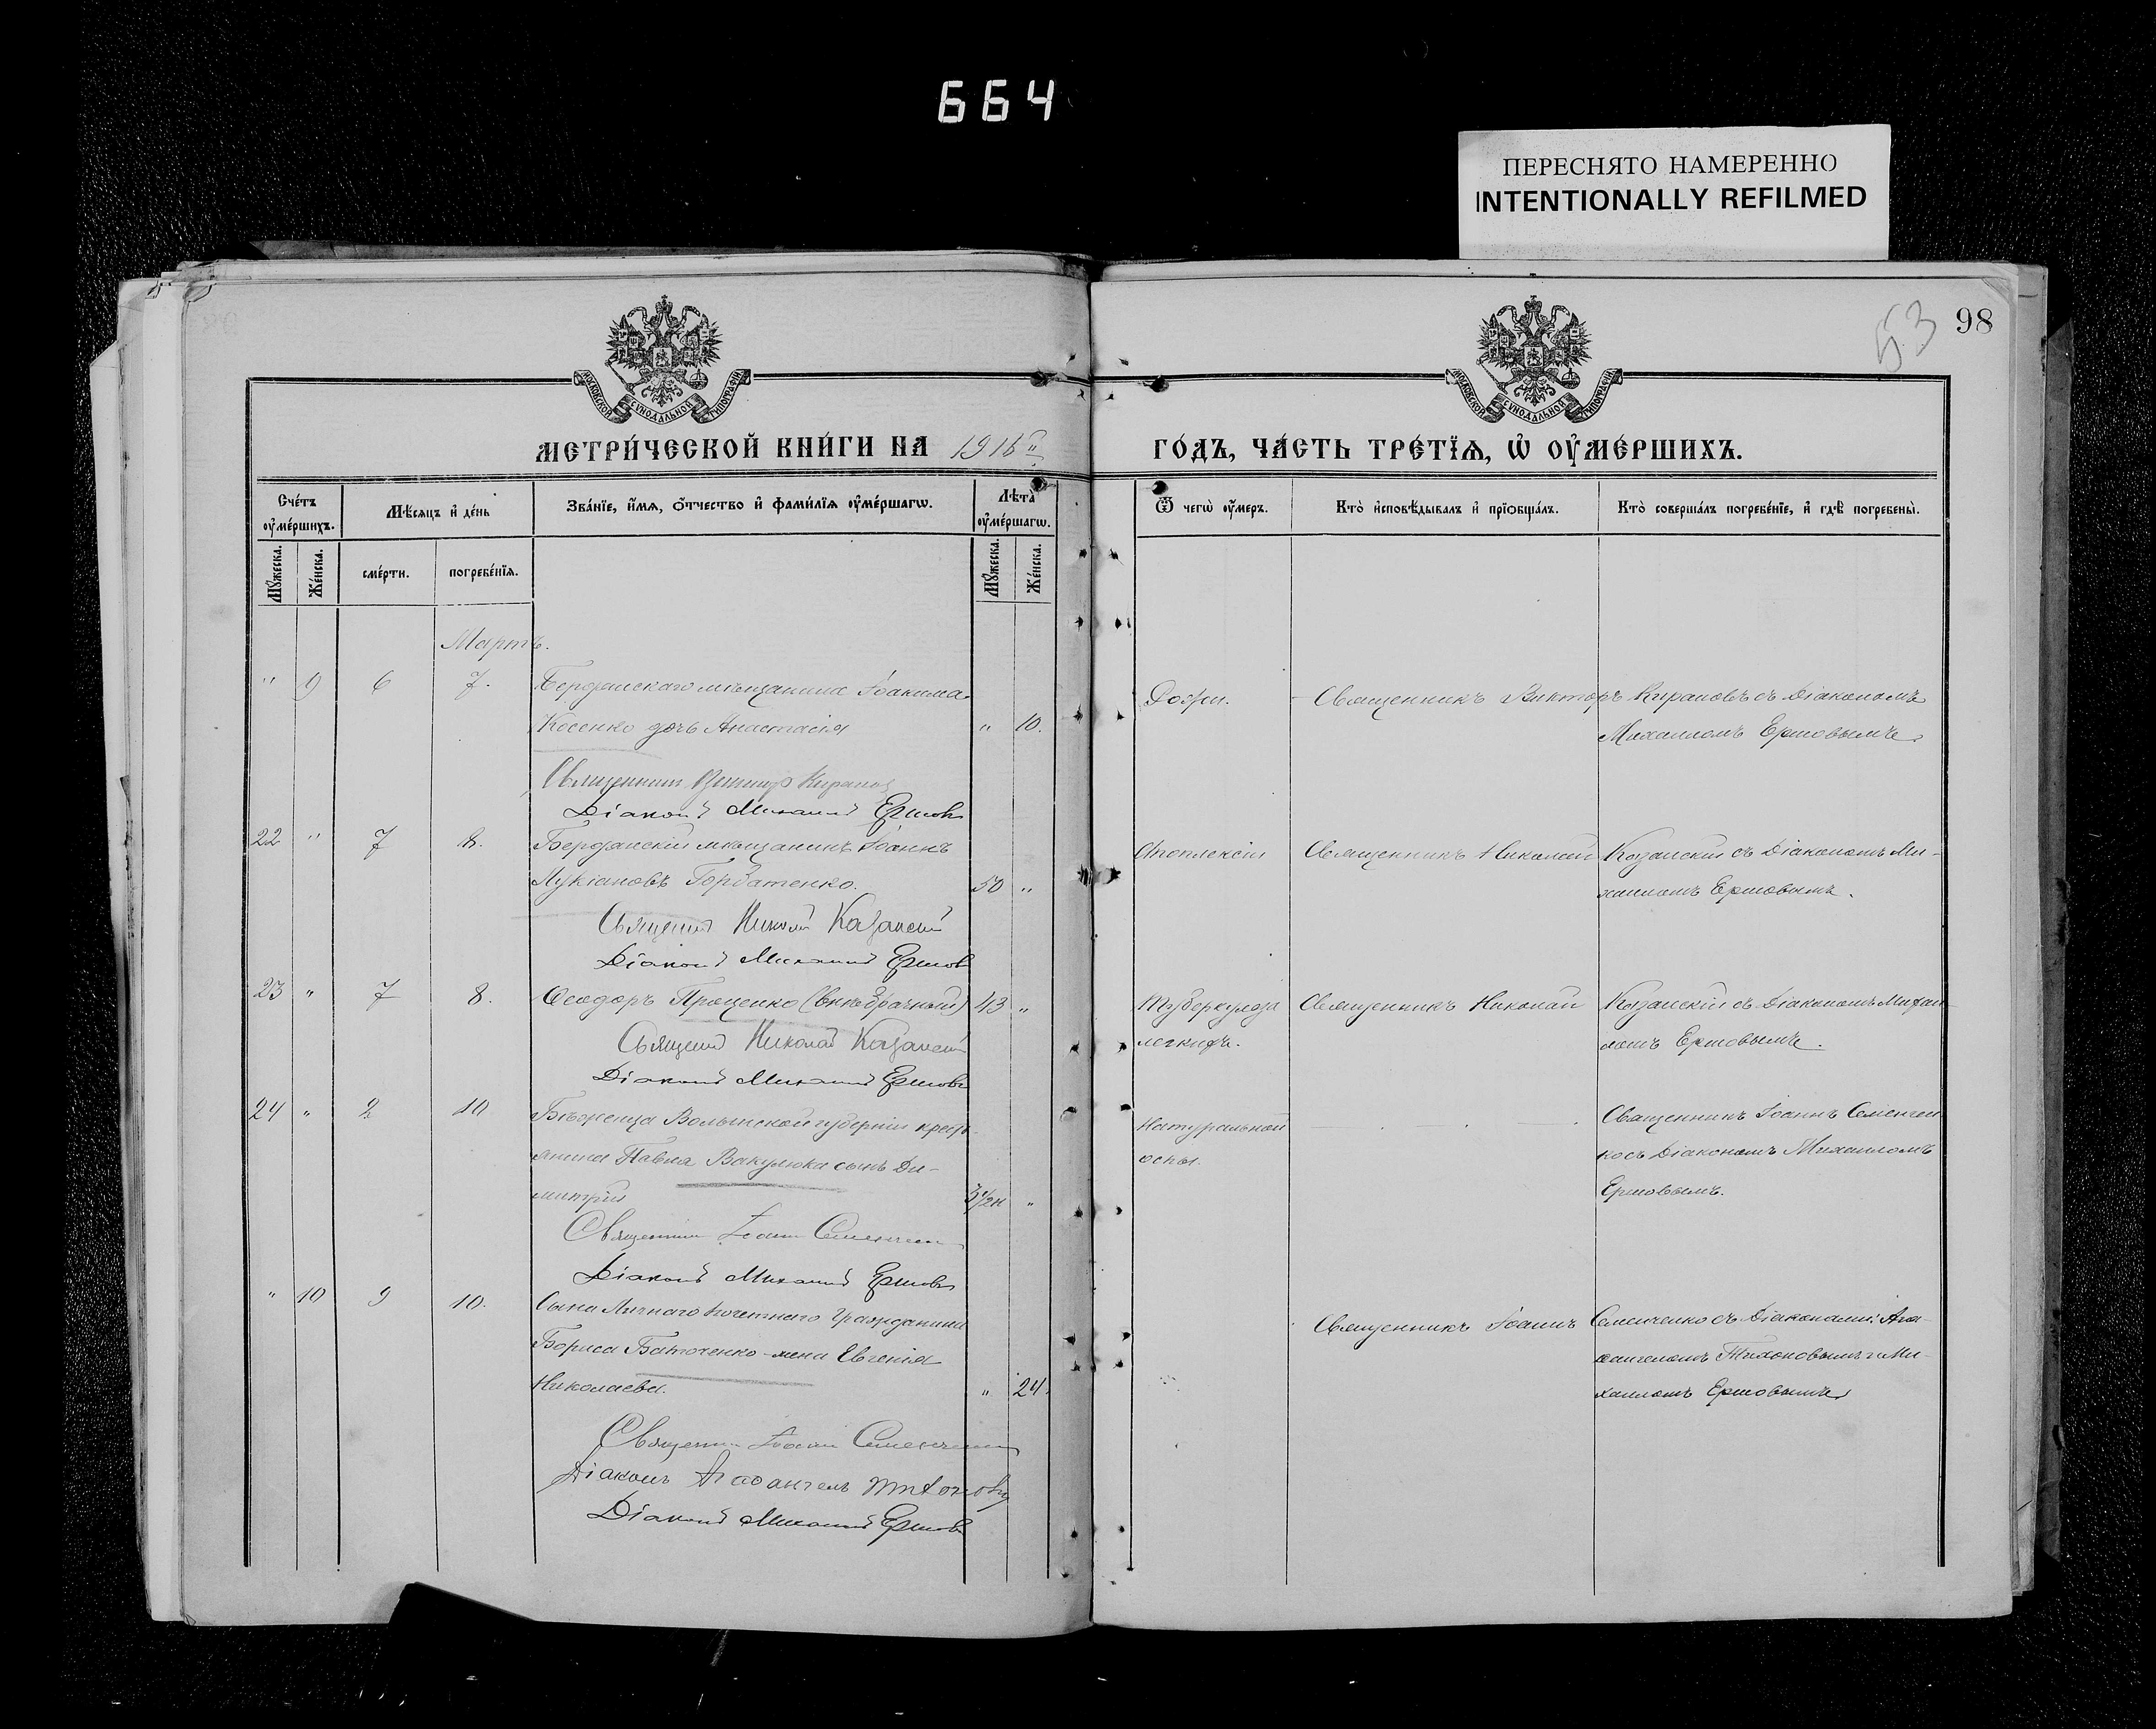 664
ПЕРЕСНЯТО НАМЕРЕННО
INTENTIONALLY REFILMED
53
98
МОСКОВСКОЙ СѴНОДАЛЬНОЙ ТИПОГРАФІИ
МОСКОВСКОЙ СѴНОДАЛЬНОЙ ТИПОГРАФІИ
МЕТРИ́ЧЕСКОЙ КНИ́ГИ НА 1916 й
ГО́ДЪ, ЧА́СТЬ ТРЕ́ТЇѦ, Ѡ҆ ОУ҆МЕ́РШИХЪ.
Сче́тъ оу҆ме́ршихъ.
Мѣ́сяцъ и҆ де́нь
Зва́нїе, и҆́мѧ, ѻ҆́тчество и҆ фами́лїѧ оу҆ме́ршагѡ.
Лѣта̀ оу҆ме́ршагѡ.
Ѿ чегѡ̀ оу҆́меръ.
Кто̀ и҆сповѣ́дывалъ и҆ прїѡбща́лъ.
Кто̀ соверша́лъ погребе́нїе, и҆ гдѣ̀ погребены̀.
Мꙋ́жеска.
Же́нска.
сме́рти.
погребе́нїѧ.
Мꙋ́жеска.
Же́нска.
Мартъ.
" 9 6 7. Бердянскаго мѣщанина Іоакима
Косенко дочь Анастасія " 10.
Священникъ Викторъ Кирановъ съ Діакономъ
Михаиломъ Ершовымъ
Священник Виктор Киранов
Діаконъ Михаилъ Ершовъ
22 " 7 8. Бердянскій мѣщанинъ Іоаннъ
Лукіановъ Горбатенко. 50 "
Апоплексіи Священникъ Николай Казанскій съ Діакономъ Ми-
хаиломъ Ершовымъ.
Священникъ Николай Казанскій
Діаконъ Михаилъ Ершовъ
23 " 7 8. Ѳеодоръ Проценко (внѣбрачный) 43 "
Туберкулеза Священникъ Николай Казанскій съ Діакономъ Михаи-
легкихъ. ломъ Ершовымъ.
Священникъ Николай Казанскій
Діаконъ Михаилъ Ершовъ
24 " 2 10 Бѣженца Волынской губерніи кресть-
янина Павла Вакулюка сынъ Ди-
митрій "
Натуральной
оспы.
Священникъ Іоаннъ Семенчен-
ко съ Діакономъ Михаиломъ
Ершовымъ.
Священникъ Іоаннъ Семенченко
Діаконъ Михаилъ Ершовъ
" 10 9 10. Сына Личнаго почетнаго Гражданина
Бориса Баточенко жена Евгенія
Николаева. " 24.
Священникъ Іоаннъ Семенченко съ Діаконами: Ага-
ѳангеломъ Тихоновымъ и Ми-
хаиломъ Ершовымъ
Священникъ Іоаннъ Семенченко
Діаконъ Агаѳангелъ Тихоновъ
Діаконъ Михаилъ Ершовъ